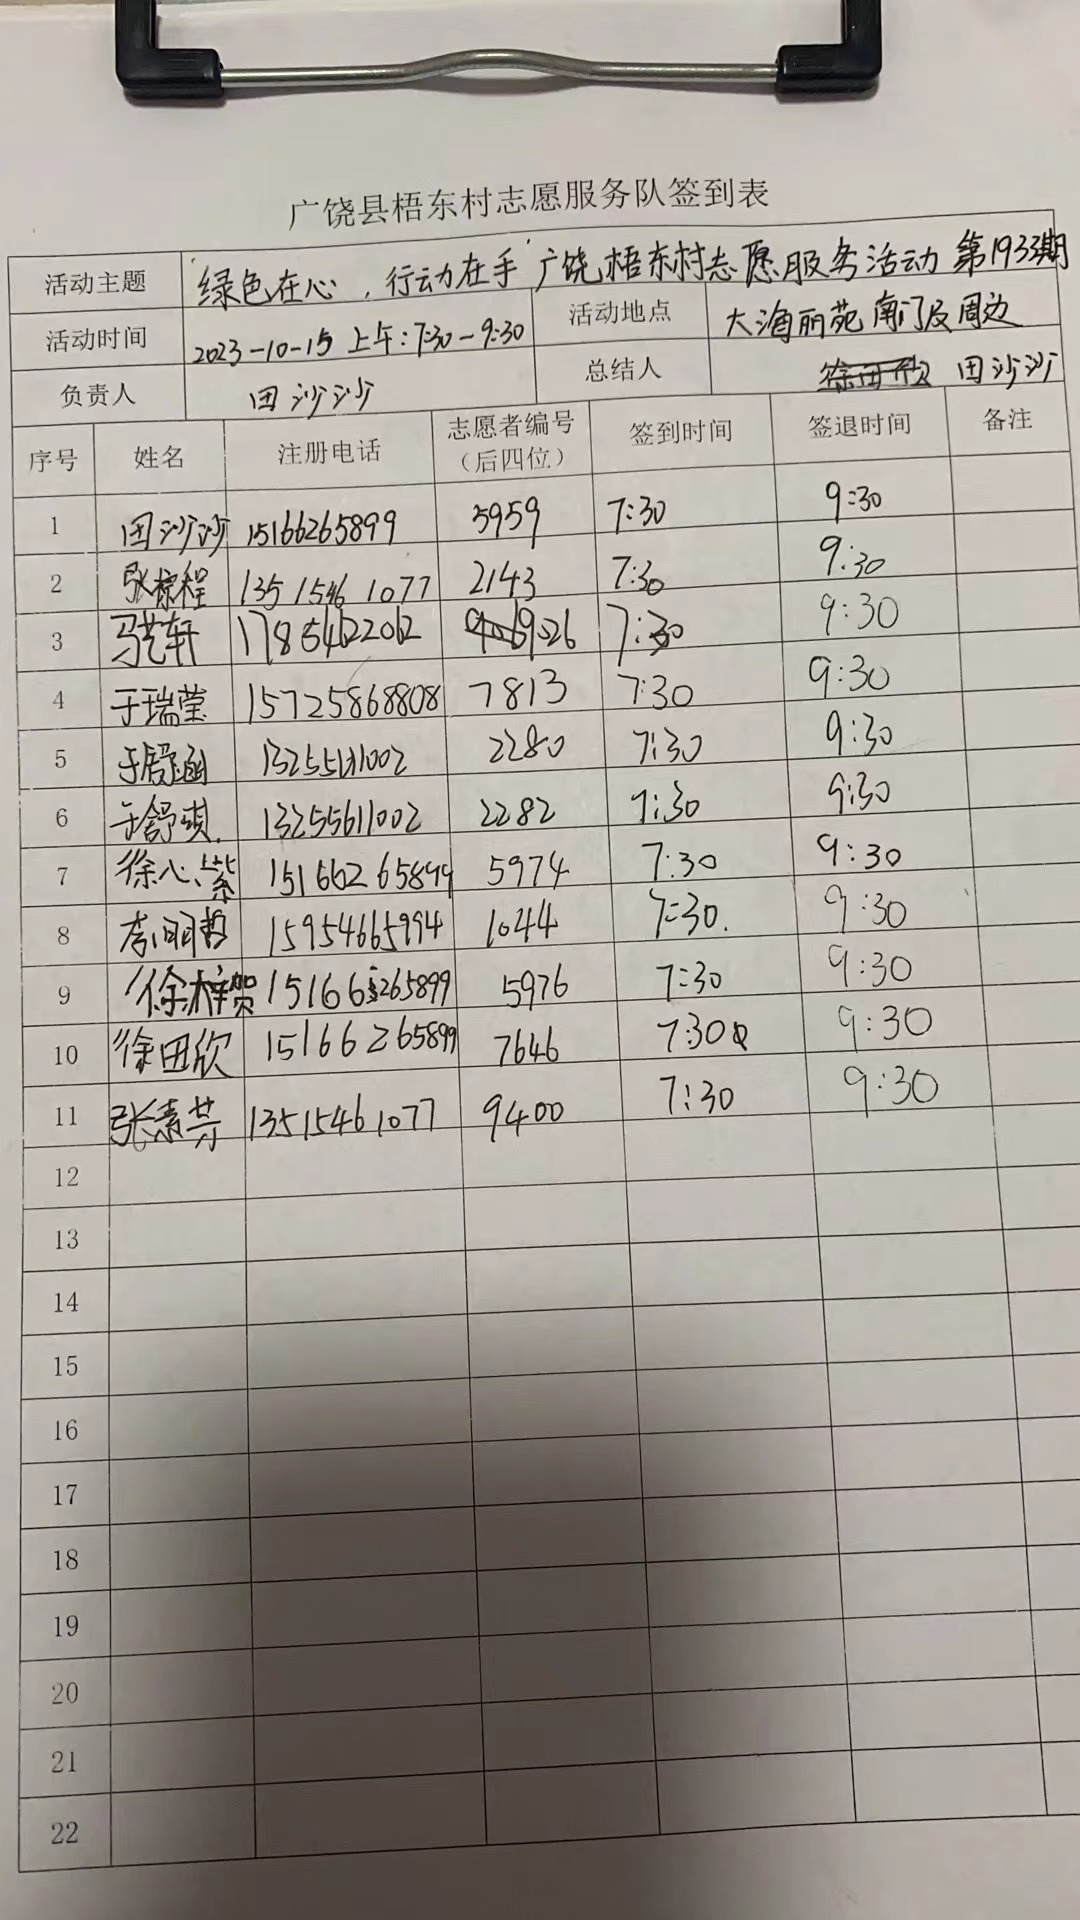 广饶县梧东村志愿服务队签到表
活动主题 绿色在心，行动在手 广饶梧东村志愿服务活动 第1933期
活动时间 2023-10-15 上午：7:30-9:30 活动地点 大海丽苑南门及周边
负责人 田沙沙 总结人 田沙沙
序号 姓名 注册电话 志愿者编号（后四位） 签到时间 签退时间 备注
1 田沙沙 15166265899 5959 7:30 9:30
2 张棕程 13515461077 2143 7:30 9:30
3 马艺轩 17854622062 9026 7:30 9:30
4 于瑞莹 15725868808 7813 7:30 9:30
5 于舒涵 2280 7:30 9:30
6 于舒琪 13255611002 2282 7:30 9:30
7 徐心紫 15166265899 5974 7:30 9:30
8 李明哲 15954665994 1044 7:30 9:30
9 徐梓贺 15166265899 5976 7:30 9:30
10 徐田欣 15166265899 7646 7:30 9:30
11 张素芬 13515461077 9400 7:30 9:30
12
13
14
15
16
17
18
19
20
21
22